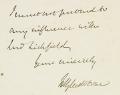 I must not pretend to
any influence with
Lord Lichfield.
Yours sincerely